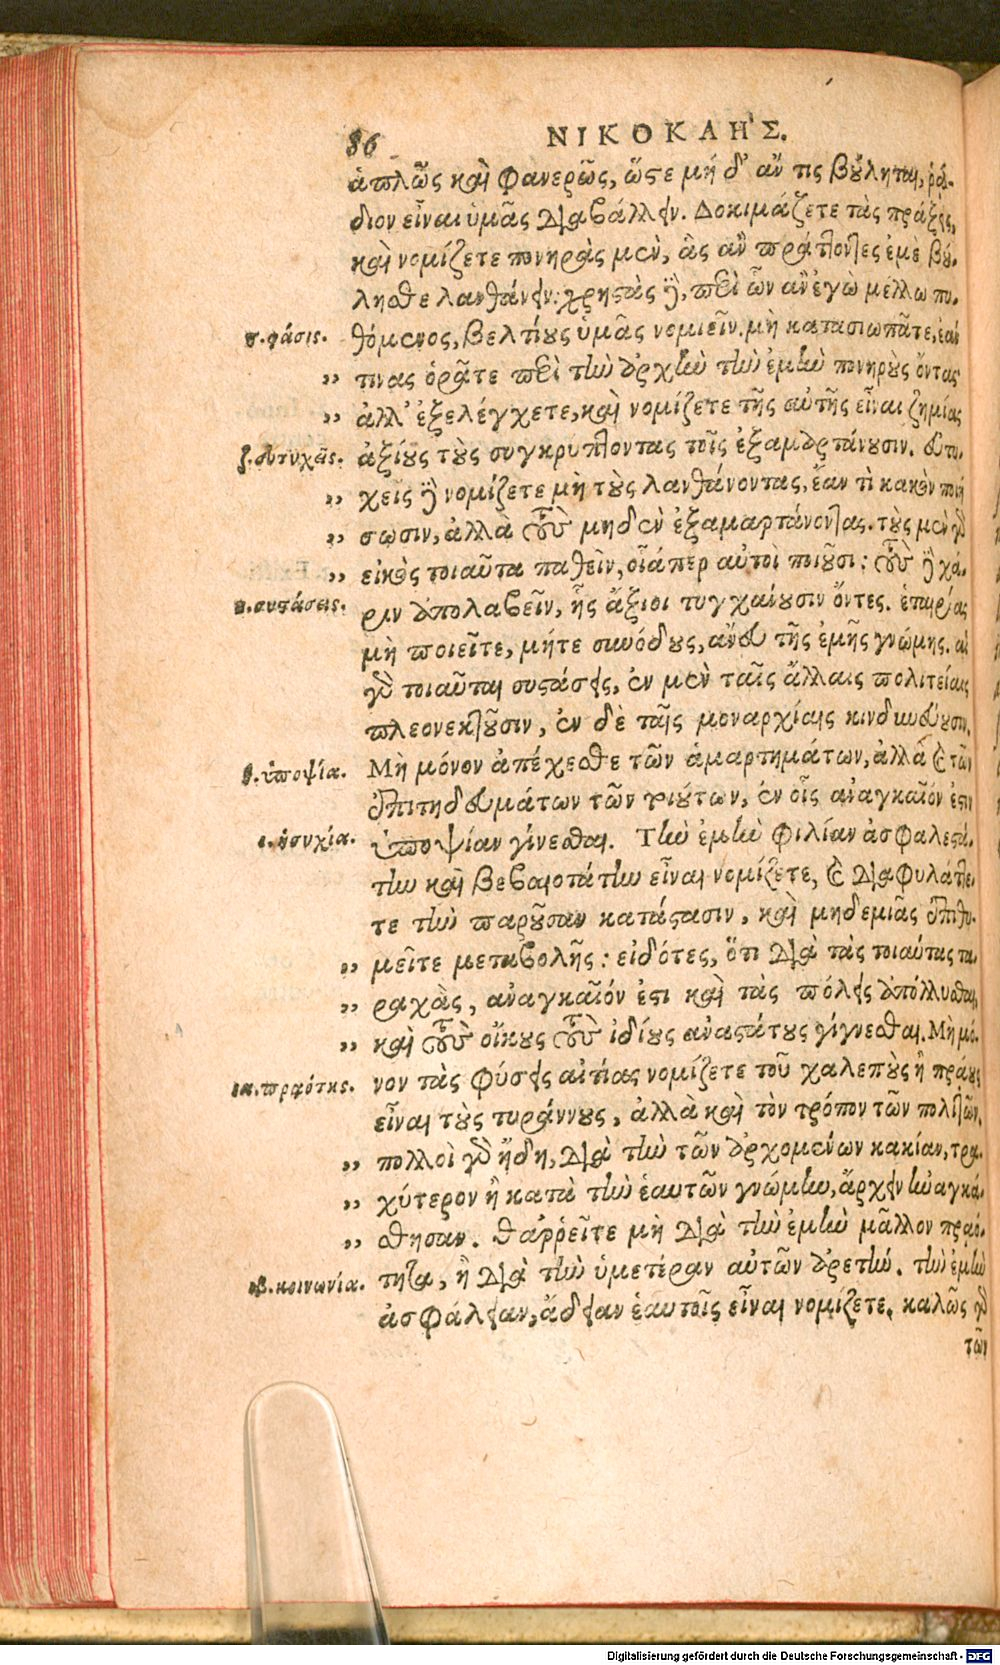 86
ΝΙΚΟΚΛΗΣ.
ἁπλῶς καὶ φανερῶς, ὥστε μή δ' ἄν τις βούληται, ῥᾴ-
διον εἶναι ὑμᾶς διαβάλλειν. Δοκιμάζετε τὰς πράξεις,
καὶ νομίζετε πονηρὰς μὲν, ἃς ἂν πράττοντες ἐμὲ βού-
λησθε λανθάνειν: χρηστὰς δὲ, περὶ ὧν ἂν ἐγὼ μέλλω πυ-
ϛ. φάσις. θόμενος, βελτίους ὑμᾶς νομιεῖν. μὴ κατασιωπᾶτε, ἐάν
„ τινας ὁρᾶτε περὶ τὴν ἀρχὴν τὴν ἐμὴν πονηροὺς ὄντας
„ ἀλλ' ἐξελέγχετε, καὶ νομίζετε τῆς αὐτῆς εἶναι ζημίας
ζ. εὐτυχεῖς. ἀξίους τοὺς συγκρύπτοντας τοῖς ἐξαμαρτάνουσιν. εὐτυ-
„ χεῖς δὲ νομίζετε μὴ τοὺς λανθάνοντας, ἐάν τι κακὸν ποιή
„ σωσιν, ἀλλὰ τοὺς μηδὲν ἐξαμαρτάνοντας. τοὺς μὲν γὰρ
„ εἰκὸς τοιαῦτα παθεῖν, οἷά περ αὐτοὶ ποιοῦσι: τοὺς δὲ χά-
η. συστάσεις. ριν ἀπολαβεῖν, ἧς ἄξιοι τυγχάνουσιν ὄντες. ἑταιρίας
μὴ ποιεῖτε, μήτε συνόδους, ἄνευ τῆς ἐμῆς γνώμης. αἱ
γὰρ τοιαῦται συστάσεις, ἐν μὲν ταῖς ἄλλαις πολιτείαις
πλεονεκτοῦσιν, ἐν δὲ ταῖς μοναρχίαις κινδυνεύουσιν.
θ. ὑποψία. Μὴ μόνον ἀπέχεσθε τῶν ἁμαρτημάτων, ἀλλὰ καὶ τῶν
ἐπιτηδευμάτων τῶν τοιούτων, ἐν οἷς ἀναγκαῖόν ἐστιν
ι. ἡσυχία. ὑποψίαν γίνεσθαι. Τὴν ἐμὴν φιλίαν ἀσφαλεστά-
την καὶ βεβαιοτάτην εἶναι νομίζετε, καὶ διαφυλάττε-
τε τὴν παροῦσαν κατάστασιν, καὶ μηδεμιᾶς ἐπιθυ-
„ μεῖτε μεταβολῆς: εἰδότες, ὅτι διὰ τὰς τοιαύτας τα-
„ ραχὰς, ἀναγκαῖόν ἐστι καὶ τὰς πόλεις ἀπόλλυσθαι,
„ καὶ τοὺς οἴκους τοὺς ἰδίους ἀναστάτους γίγνεσθαι. Μὴ μό-
ια. πρᾳότης. νον τὰς φύσεις αἰτίας νομίζετε τοῦ χαλεποὺς ἢ πράους
εἶναι τοὺς τυράννους, ἀλλὰ καὶ τὸν τρόπον τῶν πολιτῶν.
„ πολλοὶ γὰρ ἤδη, διὰ τὴν τῶν ἀρχομένων κακίαν, τρα-
„ χύτερον ἢ κατὰ τὴν ἑαυτῶν γνώμην, ἄρχειν ἠναγκά-
„ σθησαν. θαῤῥεῖτε μὴ διὰ τὴν ἐμὴν μᾶλλον πραό-
ιβ. κοινωνία. τητα, ἢ διὰ τὴν ὑμετέραν αὐτῶν ἀρετήν. τὴν ἐμὴν
ἀσφάλειαν, ἄδειαν ἑαυτοῖς εἶναι νομίζετε. καλῶς γὰρ
τῶν
Digitalisierung gefördert durch die Deutsche Forschungsgemeinschaft - DFG